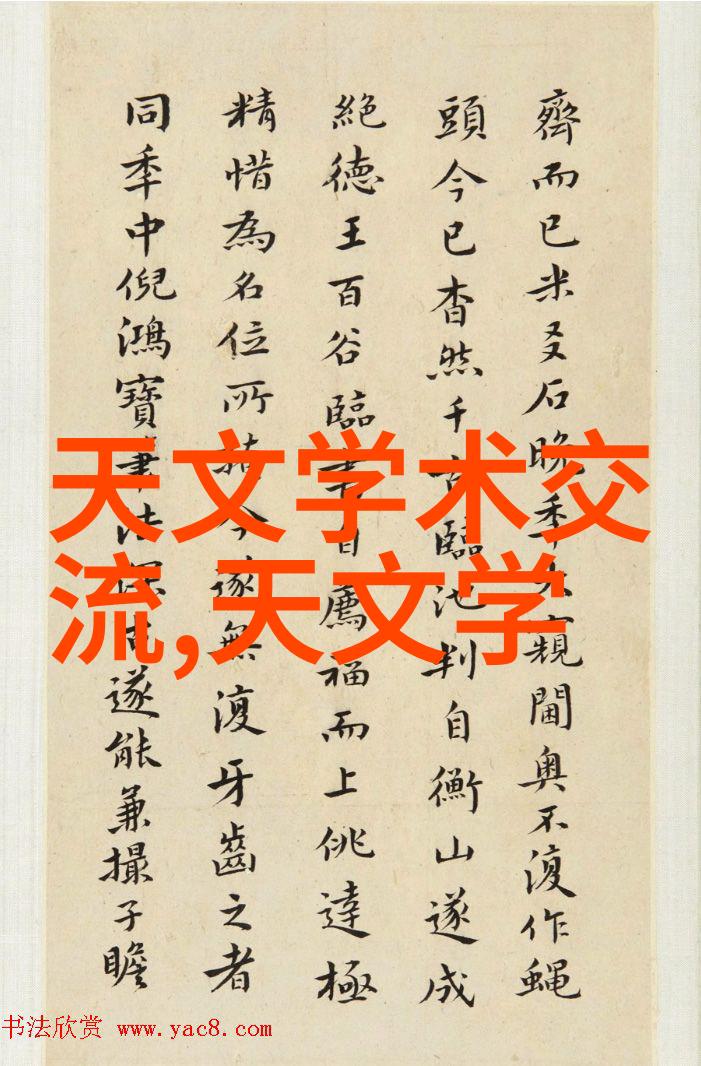 齊而已米友石晚季大窺閫奧不復作蠅
頭今已杳然千古臨池判自衡山遂成
絕德王百谷臨書自薦福而上佻達極
精惜為名位所掩今遂無復牙齒之者
同季中倪鴻寶書法深古遂能兼撮子瞻
天文学术交
流,天文学
书法欣赏 www.yac8.com